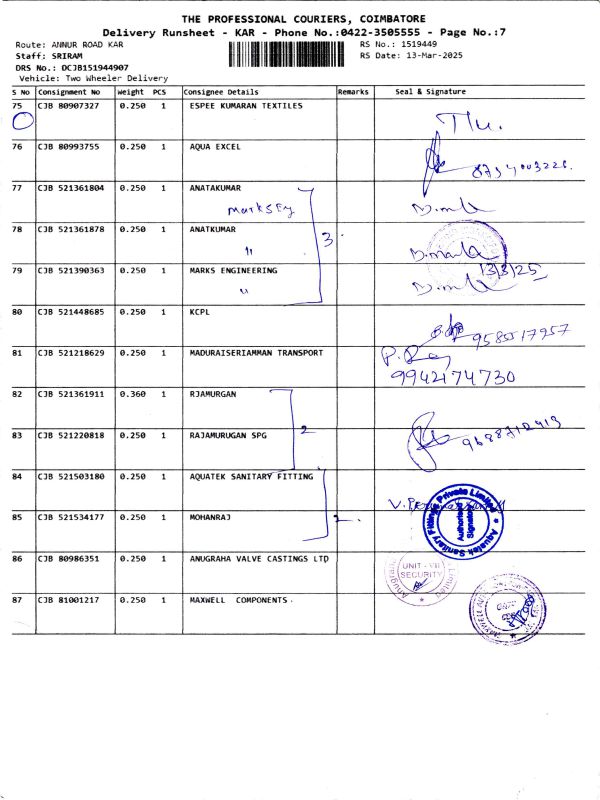 THE PROFESSIONAL COURIERS, COIMBATORE
Delivery Runsheet - KAR - Phone No.:0422-3505555 - Page No.:7
Route: ANNUR ROAD KAR RS No.: 1519449
Staff: SRIRAM RS Date: 13-Mar-2025
DRS No.: DCJB151944907
Vehicle: Two Wheeler Delivery
S No Consignment No Weight PCS Consignee Details Remarks Seal & Signature
75 CJB 80907327 0.250 1 ESPEE KUMARAN TEXTILES
76 CJB 80993755 0.250 1 AQUA EXCEL
77 CJB 521361804 0.250 1 ANATAKUMAR
78 CJB 521361878 0.250 1 ANATKUMAR
" 3.
79 CJB 521390363 0.250 1 MARKS ENGINEERING 13/3/25
"
80 CJB 521448685 0.250 1 KCPL
9585517957
81 CJB 521218629 0.250 1 MADURAISERIAMMAN TRANSPORT
9942174730
82 CJB 521361911 0.360 1 RJAMURGAN
2
83 CJB 521220818 0.250 1 RAJAMURUGAN SPG
84 CJB 521503180 0.250 1 AQUATEK SANITARY FITTING
85 CJB 521534177 0.250 1 MOHANRAJ 2.
Aquatek Sanitary Fittings Private Limited
Authorised Signatory
86 CJB 80986351 0.250 1 ANUGRAHA VALVE CASTINGS LTD
UNIT - VII
SECURITY
87 CJB 81001217 0.250 1 MAXWELL COMPONENTS.